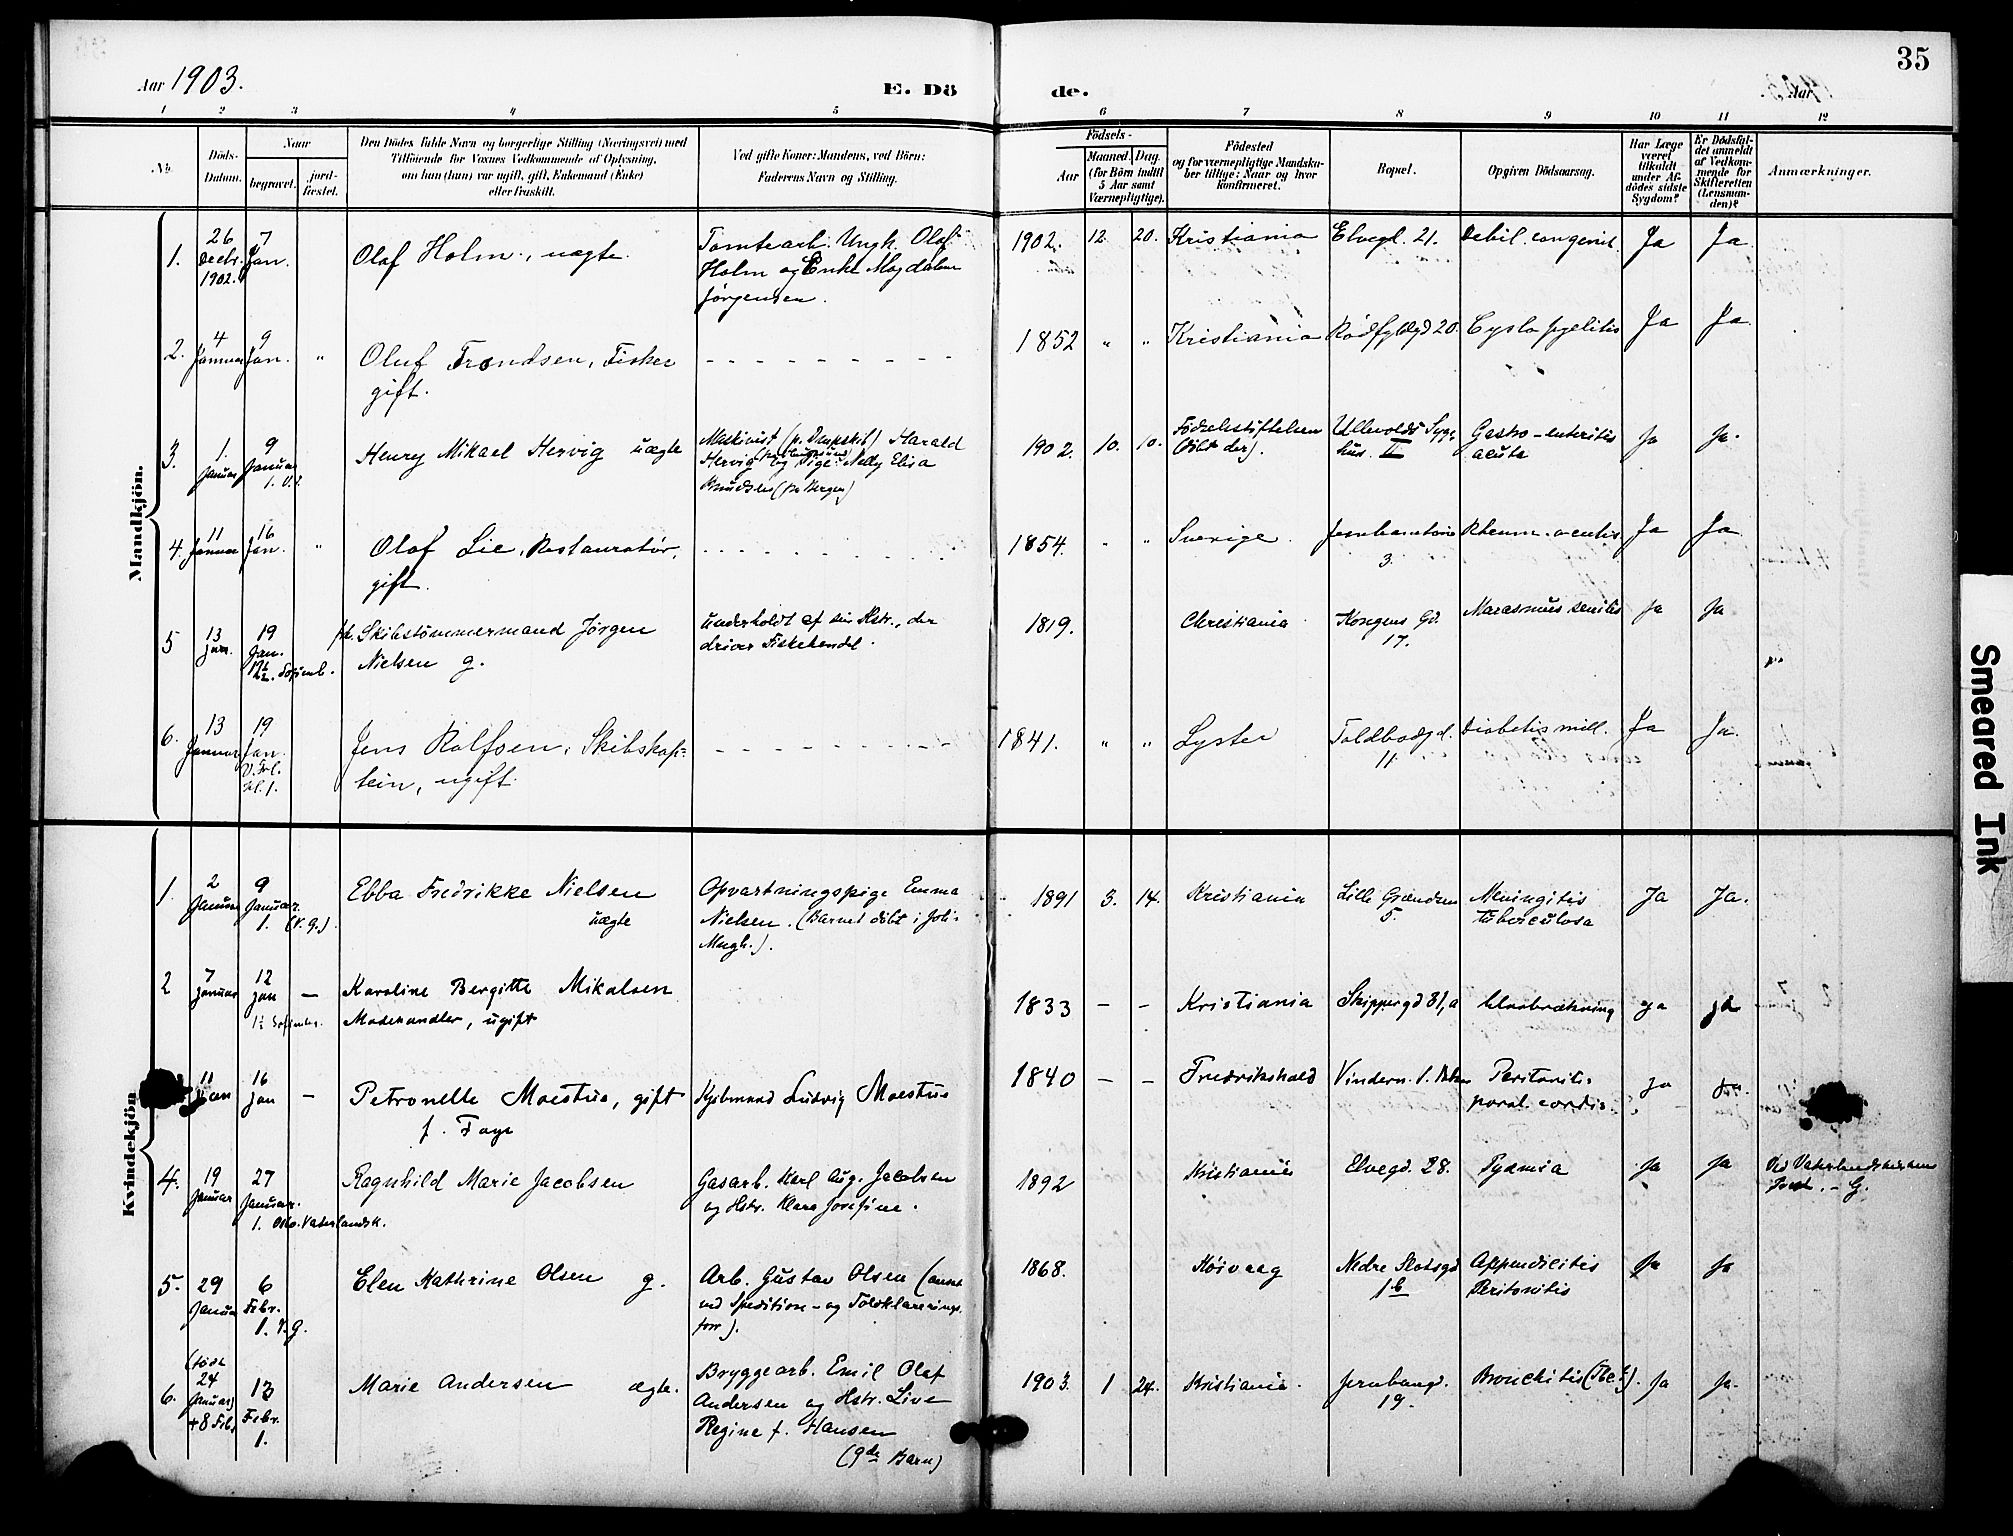 35
Aar 1903.
E. Dö
de.
Aar
1 2 3 4 5 6 7 8 9 10 11 12
No.
Döds-
Datum.
Naar
begravet.
jord-
fæstet.
Den Dödes fulde Navn og borgerlige Stilling (Næringsvei) med
Tilföiende for Voxnes Vedkommende af Oplysning,
om han (hun) var ugift, gift, Enkemand (Enke)
eller fraskilt.
Ved gifte Koner: Mandens, ved Börn:
Faderens Navn og Stilling.
Födsels-
Aar
Maaned. Dag.
(for Börn indtil
5 Aar samt
Værnepligtige).
Födested
og for værnepligtige Mandska-
ber tillige: Naar og hvor
konfirmeret.
Bopæl.
Opgiven Dödsaarsag.
Har Læge
været
tilkaldt
under Af-
dödes sidste
Sygdom?
Er Dödsfal-
det anmeldt
af Vedkom-
mende for
Skifteretten
(Lensman-
den)?
Anmærkninger.
Mandkjön.
1.
26
Decbr.
1902.
7
Jan.
Olaf Holm, uægte.
Tomtearb. Ungk. Olaf
Holm og Enke Magdalene
Jörgensen.
1902. 12 20. Kristiania Elvegd. 21. Debil. congenit. Ja Ja
2.
4
Januar
9
Jan. "
Oluf Trondsen, Fisker
gift.
1852 " " Kristiania Rödfyldgd 20. Cysto pyelitis Ja Ja
3.
1.
Januar
9
Januar
1. V.
Henry Mikael Hervig uægte
Maskinist (p. Dampskib) Harald
Hervig og Pige Nelly Elisa
Knudsen (fra Bergen)
1902. 10. 10. Födselsstiftelsen
(döbt der).
Ullevolds Syge
hus. II
Gastro-enteritis
acuta
Ja Ja.
4.
11
Januar
16
Jan. "
Olaf Lie, Restauratör,
gift.
1854. " " Sverige.
3.
Rheum. acutis. Ja Ja
5
13
Jan.
19
Jan.
fh. Skibstömmermand Jörgen
Nielsen g.
underholdt af sin Hstr., der
driver Fiskehandel.
1819. Christiania Kongens Gd.
17.
Marasmus senilis Ja Ja
6.
13
Januar
19
Jan.
V. Frl.
kl. 1.
Jens Rolfsen, Skibskap-
tein, ugift.
1841. " " Lyster Toldbodgd.
11.
Diabetis mill. Ja Ja.
Kvindekjön
1.
2
Januar
9
Januar.
1. (V. g.)
Ebba Fredrikke Nielsen
uægte
Opvartningspige Emma
Nielsen. (Barnet döbt i
Mngh.).
1891 3. 14. Kristiania Lille Grændsen
5.
Meningitis
tuberculosa
Ja Ja.
2
7
Januar
12
Jan —
Karoline Bergitte Mikalsen
Modehandler, ugift
1833 – – Kristiania Skippergd 31, a Blodbrækning Ja Ja
11
Jan
16
Jan —
Petronelle Moestue, gift
f. Faye
Kjöbmand Ludvig Moestue
1840 – – Fredrikshald Vindern. V. Aker Peritonitis
paral. cordis.
Ja Ja.
4.
19
Januar
27
Januar.
1. Oslo. Vaterlandsk.
Ragnhild Marie Jacobsen
Gasarb. Karl Aug. Jacobsen
og Hstr. Klara Josefine.
1892 Kristiania Elvegd. 28. Pyæmia Ja Ja
5.
29
Januar
6
Febr.
1. V. G.
Elen Kathrine Olsen g.
Arb. Gustav Olsen (ansat
ved Spedition- og Toldklarerings
forr).
1868. Höivaag Nedre Slotsgd
1b
Appendicitis
Peritonitis
Ja Ja
6.
(födt
24
Januar)
+8 Feb.
13
Febr.
1.
Marie Andersen ægte.
Bryggearb. Emil Olaf
Andersen og Hstr. Live
Regine f. Hansen
(9de Barn)
1903. 1 24. Kristiania. Jernbangd.
19.
Bronchitis (Tbc.?). Ja Ja.
Smeared Ink